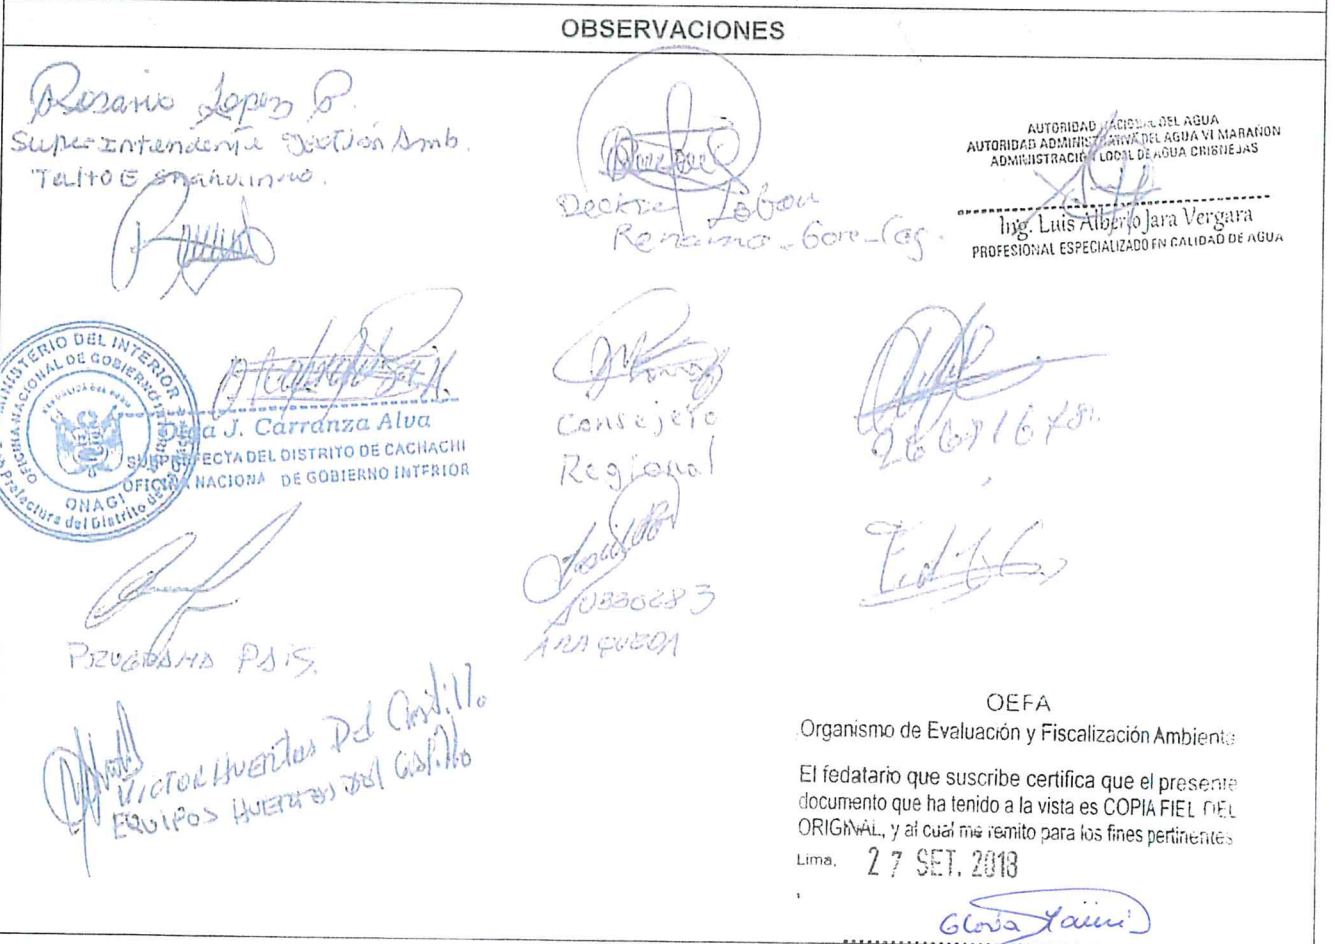 OBSERVACIONES
Rosario Lopez P.
Superintendente Gestión Amb.
AUTORIDAD NACIONAL DEL AGUA
AUTORIDAD ADMINISTRATIVA DEL AGUA VI MARAÑON
ADMINISTRACIÓN LOCAL DE AGUA CRISNEJAS
Ing. Luis Alberto Jara Vergara
PROFESIONAL ESPECIALIZADO EN CALIDAD DE AGUA
Renama - Gore - Caj.
MINISTERIO DEL INTERIOR
OFICINA NACIONAL DE GOBIERNO INTERIOR
REPUBLICA DEL PERU
ONAGI
Olga J. Carranza Alva
SUBPREFECTA DEL DISTRITO DE CACHACHI
OFICINA NACIONAL DE GOBIERNO INTERIOR
Consejero
Regional
PROGRAMA PAIS
ARAQUEDA
VICTOR HUERTAS Del Castillo
EQUIPOS HUERTAS DEL Castillo
OEFA
Organismo de Evaluación y Fiscalización Ambiental
El fedatario que suscribe certifica que el presente
documento que ha tenido a la vista es COPIA FIEL DEL
ORIGINAL, y al cual me remito para los fines pertinentes
Lima, 27 SET. 2018
Gloria